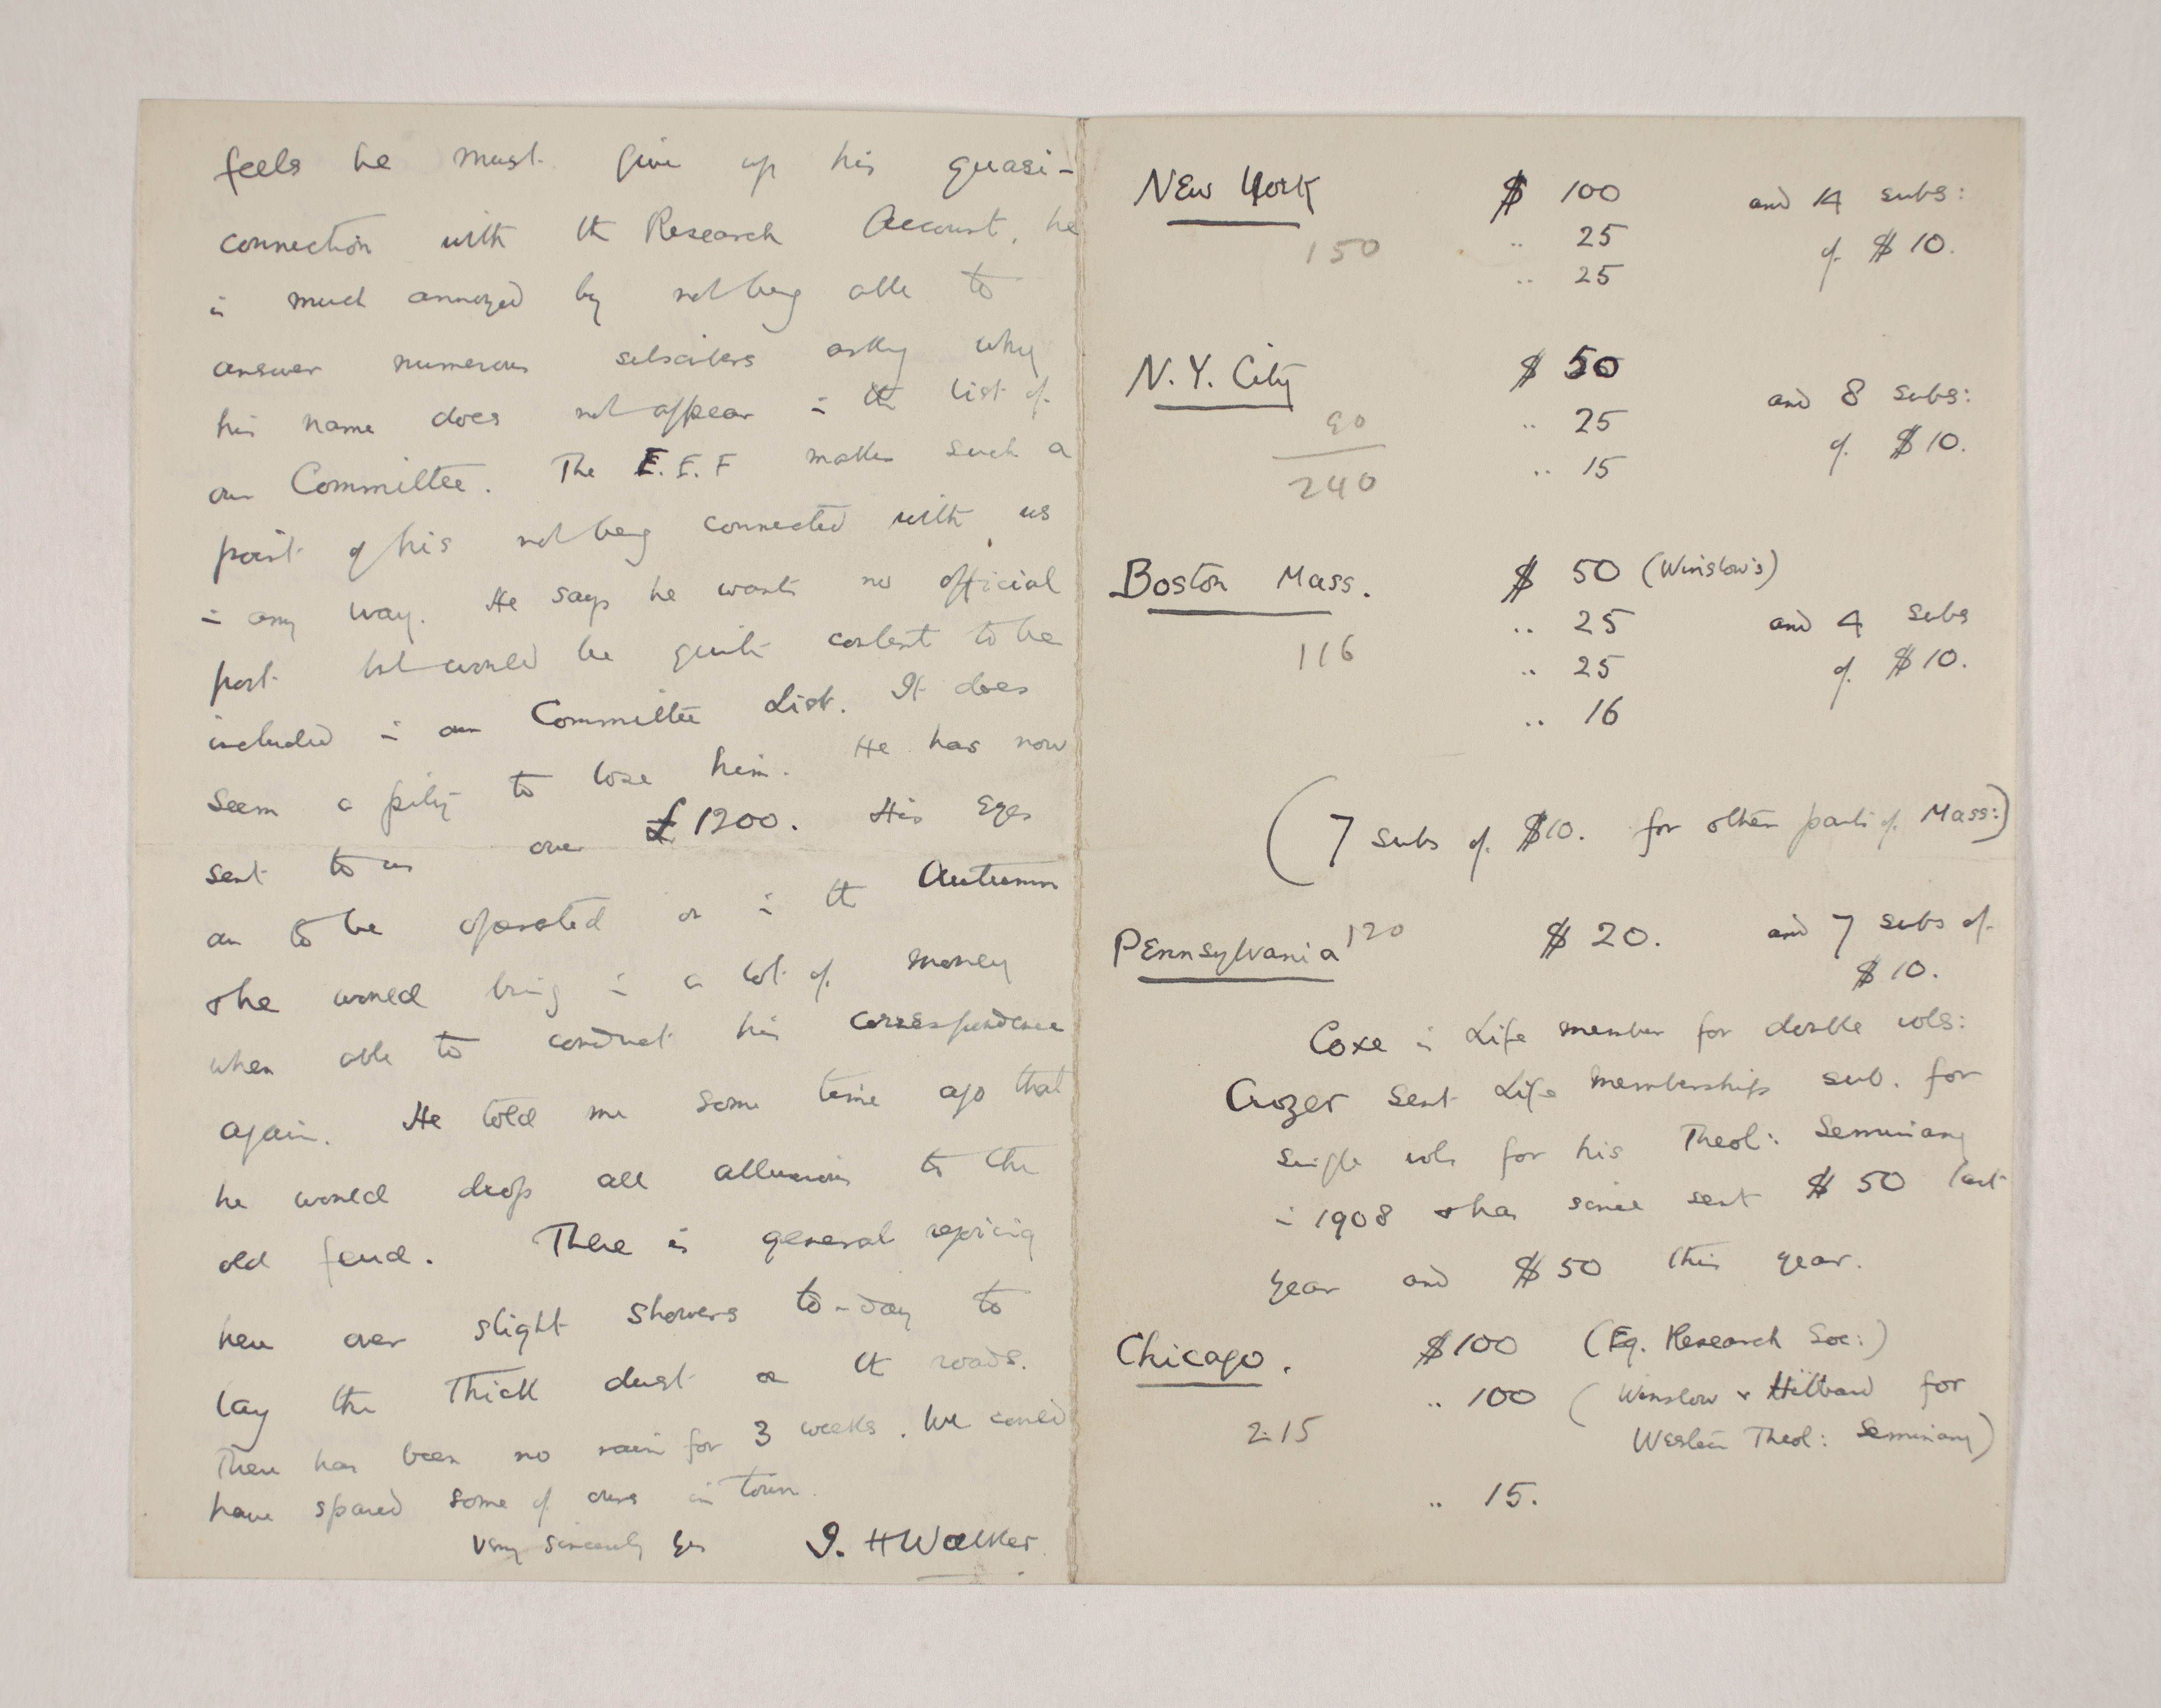 feels he must give up his quasi-
connection with the Research Account, he
is much annoyed by not being able to
answer numerous subscribers asking why
his name does not appear in the list of
our Committee. The E.E.F makes such a
point of his not being connected with us
in any way. He says he wants no official
post but would be quite content to be
included in our Committee List. It does
seem a pity to lose him. He has now
sent to us over £1200. His eyes
are to be operated on in the Autumn
& he would bring in a lot of money
when able to conduct his correspondence
again. He told me some time ago that
he would drop all allusions to the
old feud. There is general rejoicing
here over slight showers to-day to
lay the thick dust on the roads.
There has been no rain for 3 weeks. We could
have spared some of ours in town.
Very sincerely yrs I. H Walker.
New York $ 100 and 14 subs:
150 .. 25 of $10.
.. 25
N.Y. City $ 50
90 .. 25 and 8 subs:
240 .. 15 of $10.
Boston Mass. $ 50 (Winslow's)
.. 25 and 4 subs
116 .. 25 of $10.
.. 16
(7 subs of $10. for other parts of Mass:)
Pennsylvania 120 $ 20. and 7 subs of
$10.
Coxe is Life member for double vols:
Crozer sent Life membership sub. for
single vols for his Theol: Seminary
in 1908 & has since sent $50 last
year and $50 this year.
Chicago. $100 (Eg. Research Soc:)
.. 100 (Winslow & Hilbard for
215 Western Theol: Seminary)
.. 15.